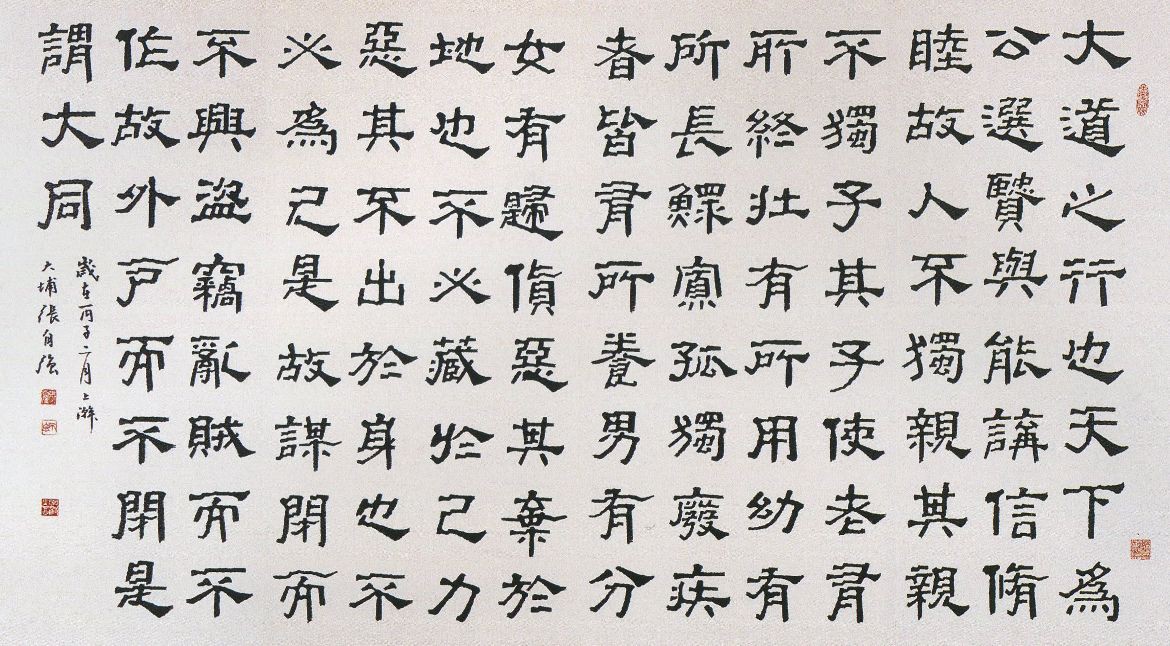 大道之行也天下為
公選賢與能講信脩
睦故人不獨親其親
不獨子其子使老有
所終壯有所用幼有
所長鰥寡孤獨廢疾
者皆有所養男有分
女有歸貨惡其棄於
地也不必藏於己力
惡其不出於身也不
必為己是故謀閉而
不興盜竊亂賊而不
作故外戶而不閉是
謂大同
歲在丙子二月上澣
大埔張自強